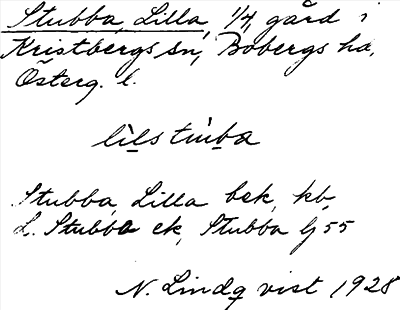 Stubba, Lilla, 1/4, gård i
Kristbergs sn, Bobergs hd,
Österg. l.
lìlstùba
Stubba, Lilla bek, kb,
L. Stubba ek, Stubba G55
N. Lindqvist 1928